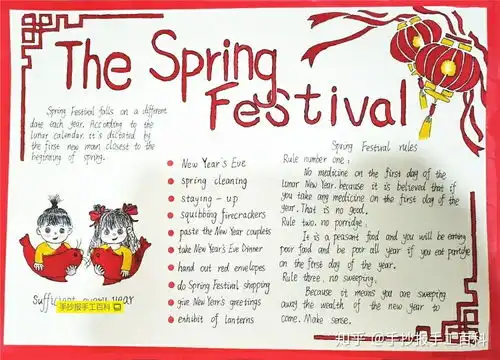 The Spring
Festival
Spring Festival falls on a different
date each year. According to the
lunar calendar. it's dictated by
the first new moon closest to the
beginning of spring.
New Year's Eve
spring cleaning
staying - up
squibbing firecrackers
paste the New Year couplets
take New Year's Eve Dinner
hand out red envelopes
do Spring Festival shopping
give New Year's greetings
exhibit of lanterns
Spring Festival rules
Rule number one:
No medicine on the first day of the
lunar New Year. because it is believed that if
you take any medicine on the first day of the
year. That is no good.
Rule two. no porridge.
It is a peasant food and you will be eating
poor food and be poor all year if you eat porridge
on the first day of the year.
Rule three. no sweeping.
Because it means you are sweeping
away the wealth of the new year to
come. Make sense.
sufficient every year
手抄报手工百科
知乎 @手抄报手工百科